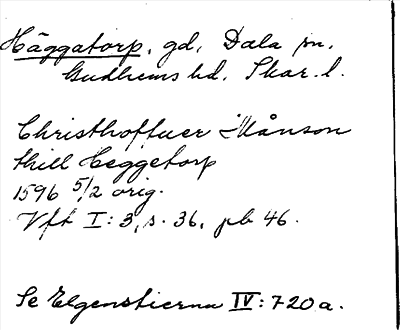 Häggatorp, gd, Dala sn.
Gudhems hd, Skar. l.
Christhoffuer Månson
thill Heggetorp
1596 5/2 orig.
Vft I:3, s. 36, pb 46.
Se Elgenstierna IV:720a.